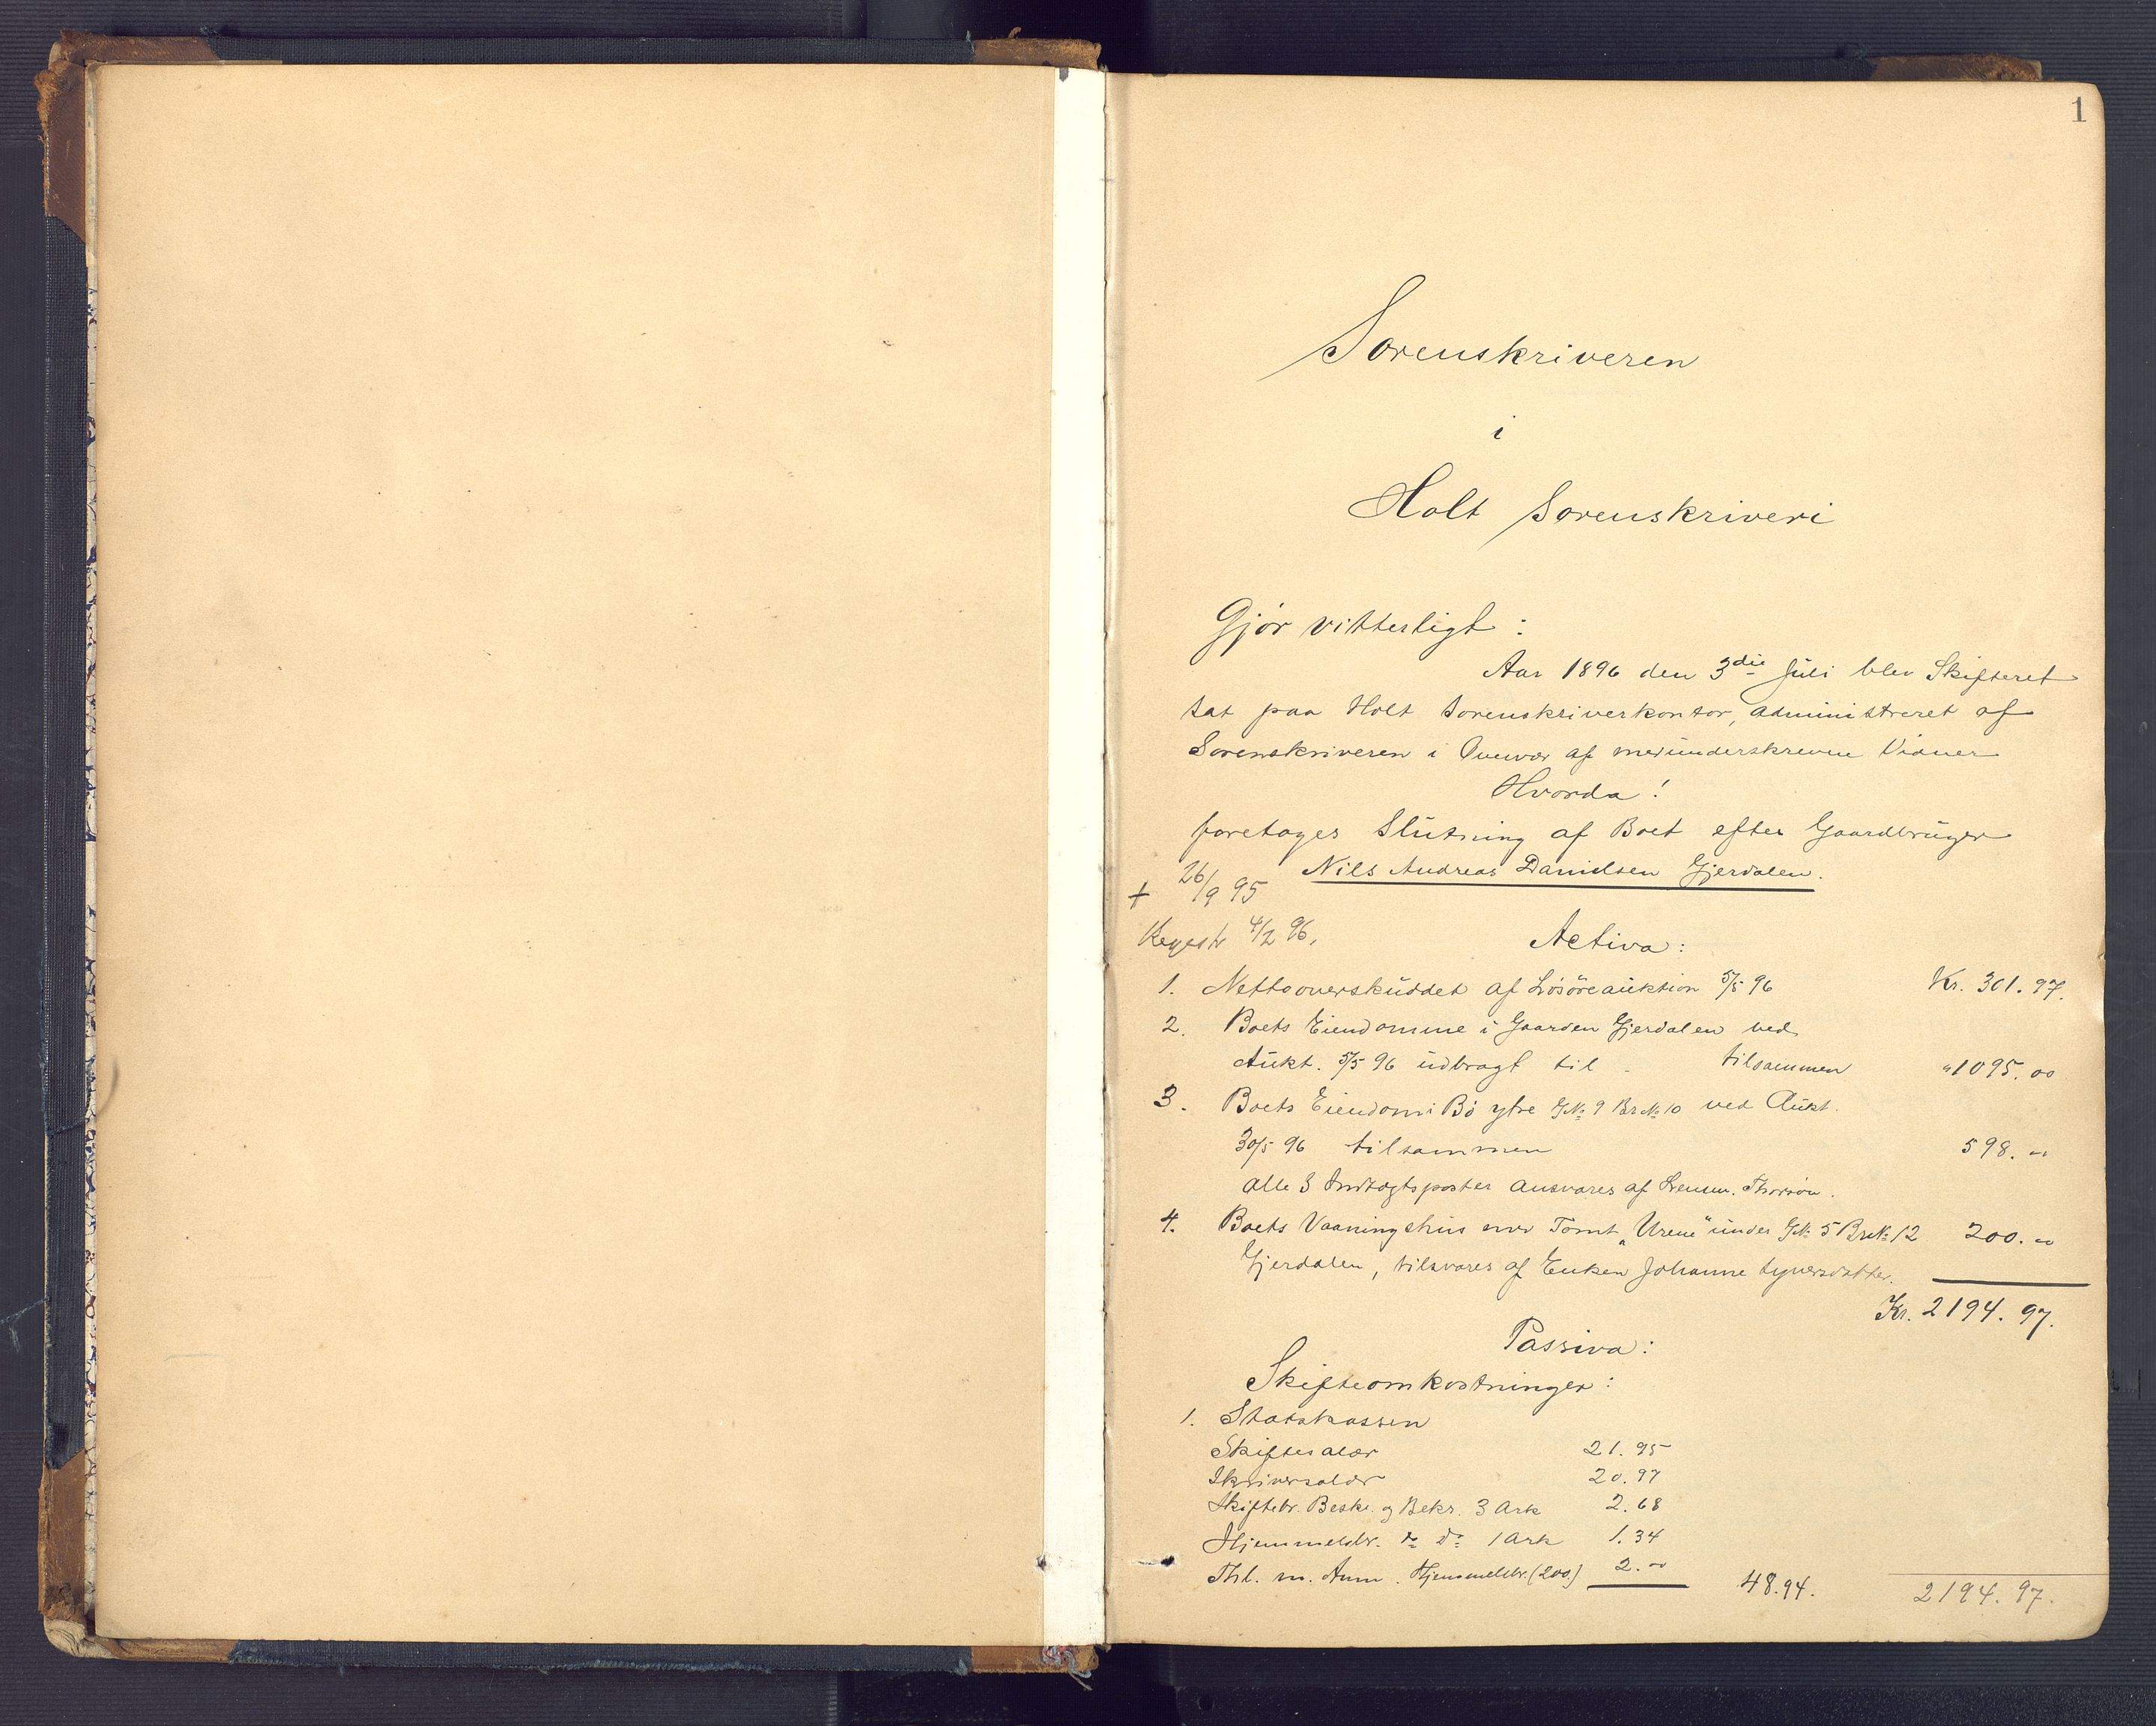 1
Sorenskriveren
i
Holt Sorenskriveri
Gjør vitterligt:
Aar 1896 den 3die Juli blev Skifteret
sat paa Holt Sorenskriverkontor, administreret af
Sorenskriveren i Overvær af medunderskrevne Vidner
Hvorda!
foretages Slutning af Boet efter Gaardbruger
Nils Andreas Danielsen Gjerdalen.
+ 26/9 95
Regestr 4/2 96.
Activa:
1. Nettooverskuddet af Løsøreauktion 5/5 96 Kr. 301.97.
2. Boets Eiendomme i Gaarden Gjerdalen ved
Aukt. 5/5 96 udbragt til - tilsammen " 1095.00
3. Boets Eiendom i Bø ytre GNo 9 BrNo 10 ved Aukt.
30/5 96 tilsammen 598. "
Alle 3 Indtægtsposter ansvares af Lensm. Thorsøn.
4. Boets Vaaningshus med Tomt "Urene" under GNo 5 BrNo 12 200. "
Gjerdalen, tilsvares af Enken Johanne
Kr. 2194.97.
Passiva:
Skifteomkostninger:
1. Statskassen
Skiftesalær 21.95
Skriversalær 20.97
Skiftebr. Besk. og Bekr. 3 Ark 2.68
Hjemmelsbr. do do 1 Ark 1.34
Thl. m. Anm. Hjemmelsbr. (200.) 2. "
48.94. 2194.97.